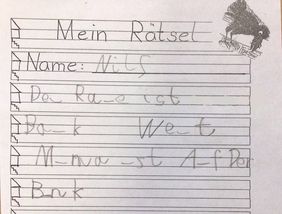 Mein Rätsel
Name: Nils
De_ Ra_e ist
Ba_k We_t
M_nwa_st A_f Der
B_nk